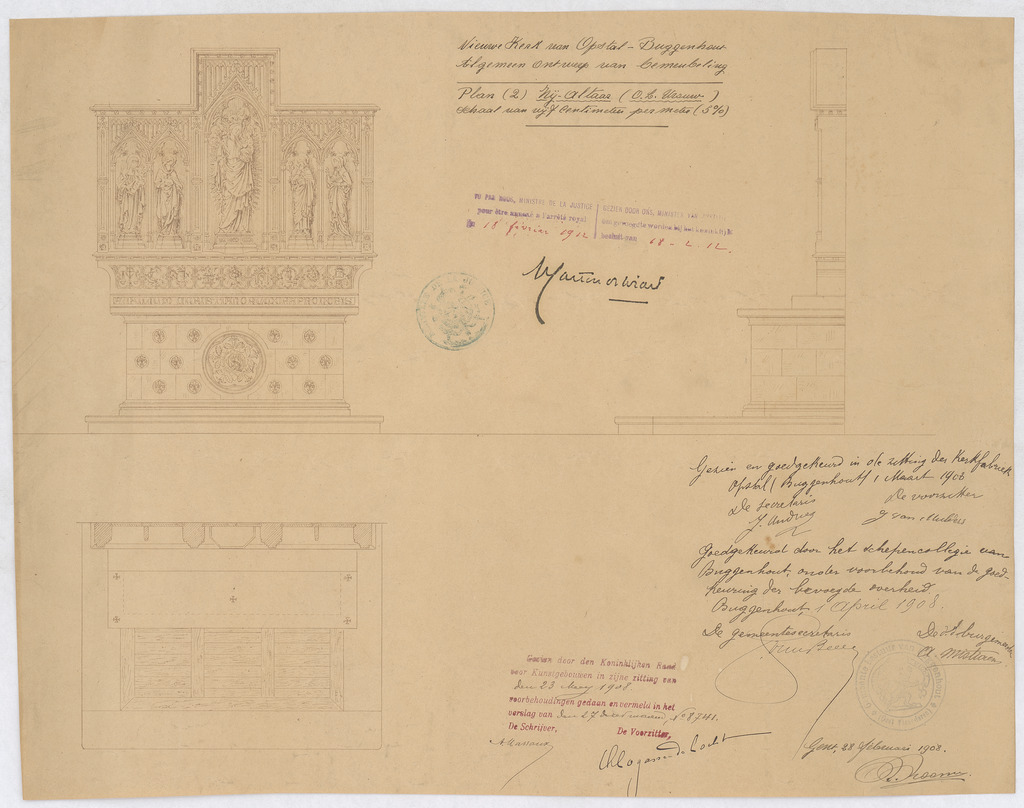 Nieuwe Kerk van Opstal-Buggenhout
Algemeen ontwerp van bemeubeling
Plan (2) Zij-Altaar (O.L. Vrouw)
Schaal van vijf Centimeters per meter (5%)
VU PAR NOUS, MINISTRE DE LA JUSTICE
pour être annexé à l'arrêté royal
du 18 février 1912
GEZIEN DOOR ONS, MINISTER VAN
besluit van 18-2-12.
Gezien en goedgekeurd in de zitting der Kerkfabriek
Opstal (Buggenhout) 1 Maart 1908
De secretaris De voorzitter
Goedgekeurd door het schepencollegie van
Buggenhout, onder voorbehoud van de goed-
keuring der bevoegde overheid.
Buggenhout, 1 April 1908.
De gemeentesecretaris De Burgemeester
Gezien door den Koninklijken Raad
voor Kunstgebouwen in zijne zitting van
den 23 Mey 1908
voorbehoudingen gedaan en vermeld in het
verslag van den 27 No 8741.
De Schrijver, De Voorzitter,
Gent, 28 februari 1908.